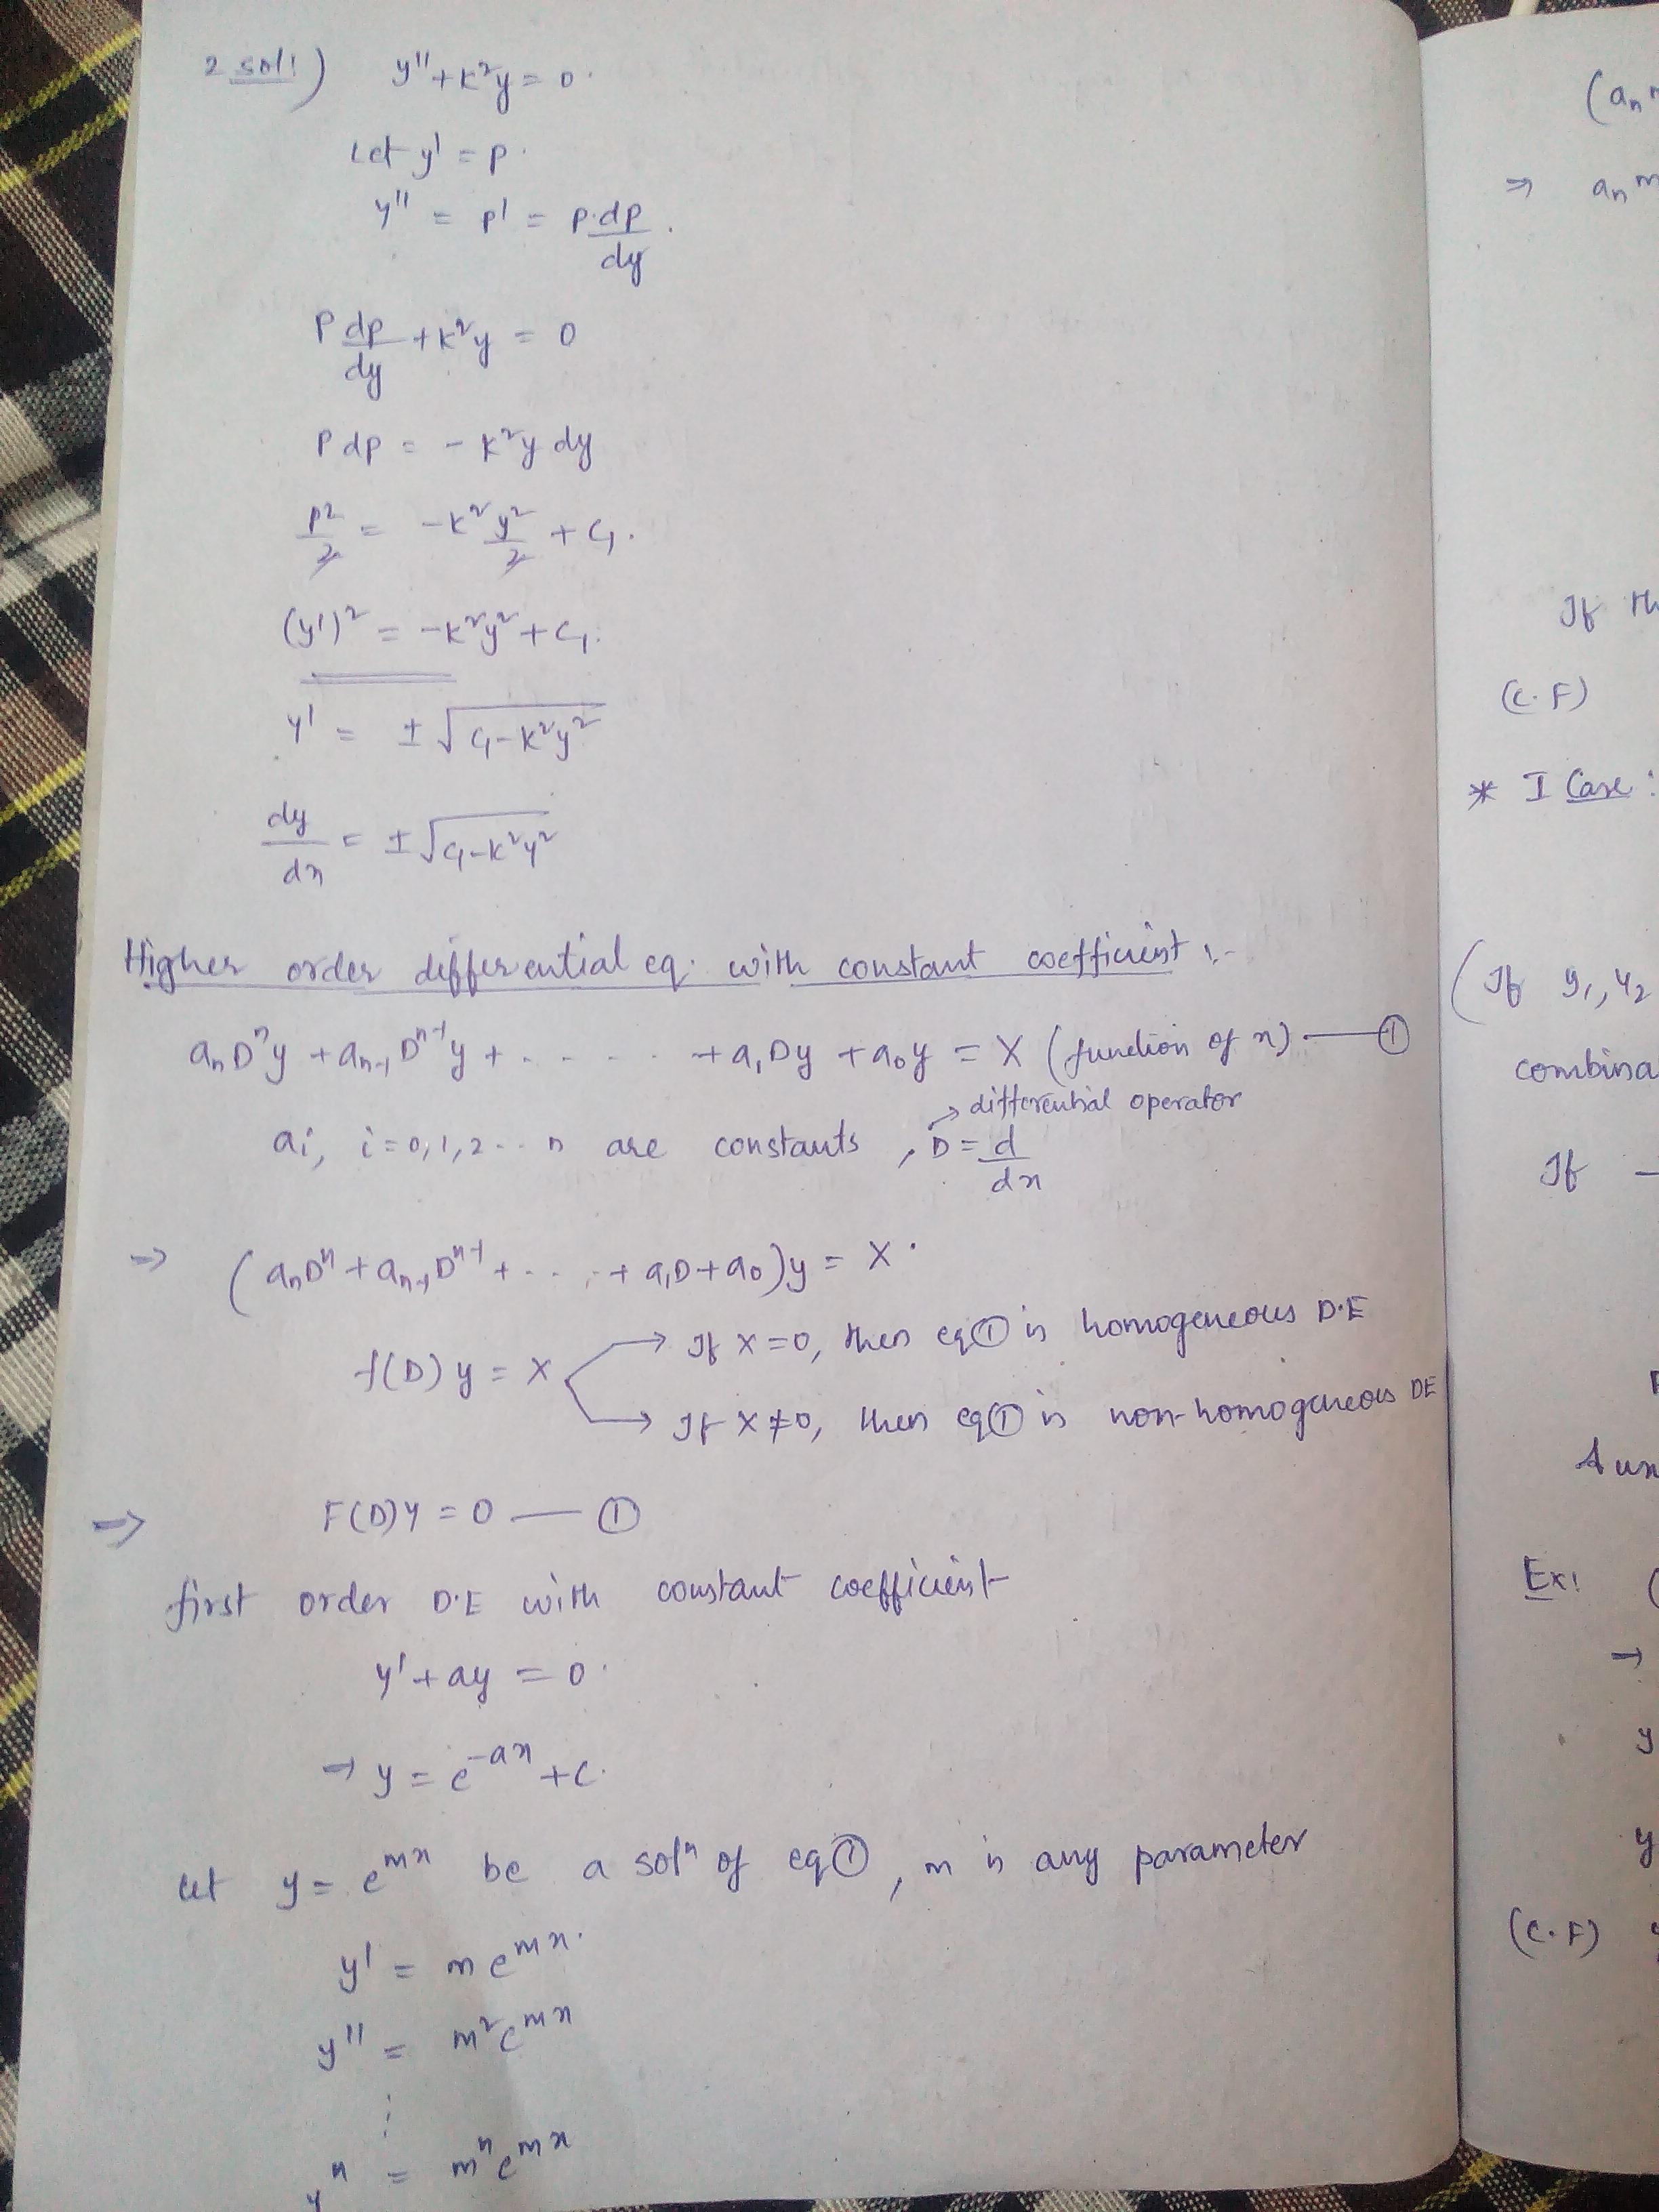 2 sol:) y'' + k²y = 0.
Let y' = p.
y'' = p' = p.dp/dy.
P dp/dy + k²y = 0
P dp = - k²y dy
p²/2 = -k² y²/2 + C₁.
(y')² = -k²y² + C₁.
y' = ± √C₁-k²y²
dy/dx = ± √C₁-k²y²
Higher order differential eq. with constant coefficient :-
aₙDⁿy + aₙ₋₁Dⁿ⁻¹y + - - - - - + a₁Dy + a₀y = X (function of x) — ①
→ differential operator
ai, i = 0, 1, 2 - - n are constants, D = d/dx
⇒ (aₙDⁿ + aₙ₋₁Dⁿ⁻¹ + - - - - + a₁D + a₀)y = X.
→ If X = 0, then eq ① is homogeneous D.E
f(D) y = X
→ If X ≠ 0, then eq ① is non-homogeneous DE
⇒ F(D)Y = 0 — ①
first order D.E with constant coefficient
y' + ay = 0.
⇒ y = e⁻ᵃˣ + c.
let y = eᵐˣ be a solⁿ of eq ①, m is any parameter
y' = m eᵐˣ.
y'' = m² eᵐˣ
⋮
yⁿ = mⁿ eᵐˣ
(aₙ
⇒ aₙ m
If
(C.F)
* I Case :
(If y₁, y₂
combina
If —
Aux
Ex:
→
y
y
(C.F)